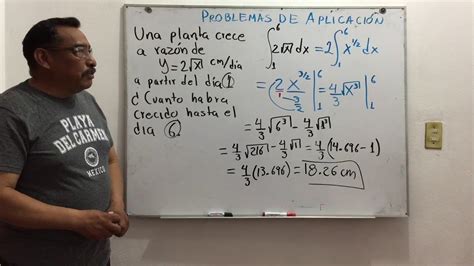 PROBLEMAS DE APLICACIÓN
Una planta crece
a razón de
y=2√x cm/día
a partir del día 1
¿Cuanto habra
crecido hasta el
dia 6
∫₁⁶ 2√x dx = 2∫₁⁶ x^1/2 dx
= 2 x^3/2 / 3/2 |₁⁶ = 4/3 √x³ |₁⁶
= 4/3 √6³ - 4/3 √1³
= 4/3 √216 - 4/3 √1 = 4/3 (14.696-1)
= 4/3 (13.696) = 18.26 cm
PLAYA
DEL CARMEN
MEXICO